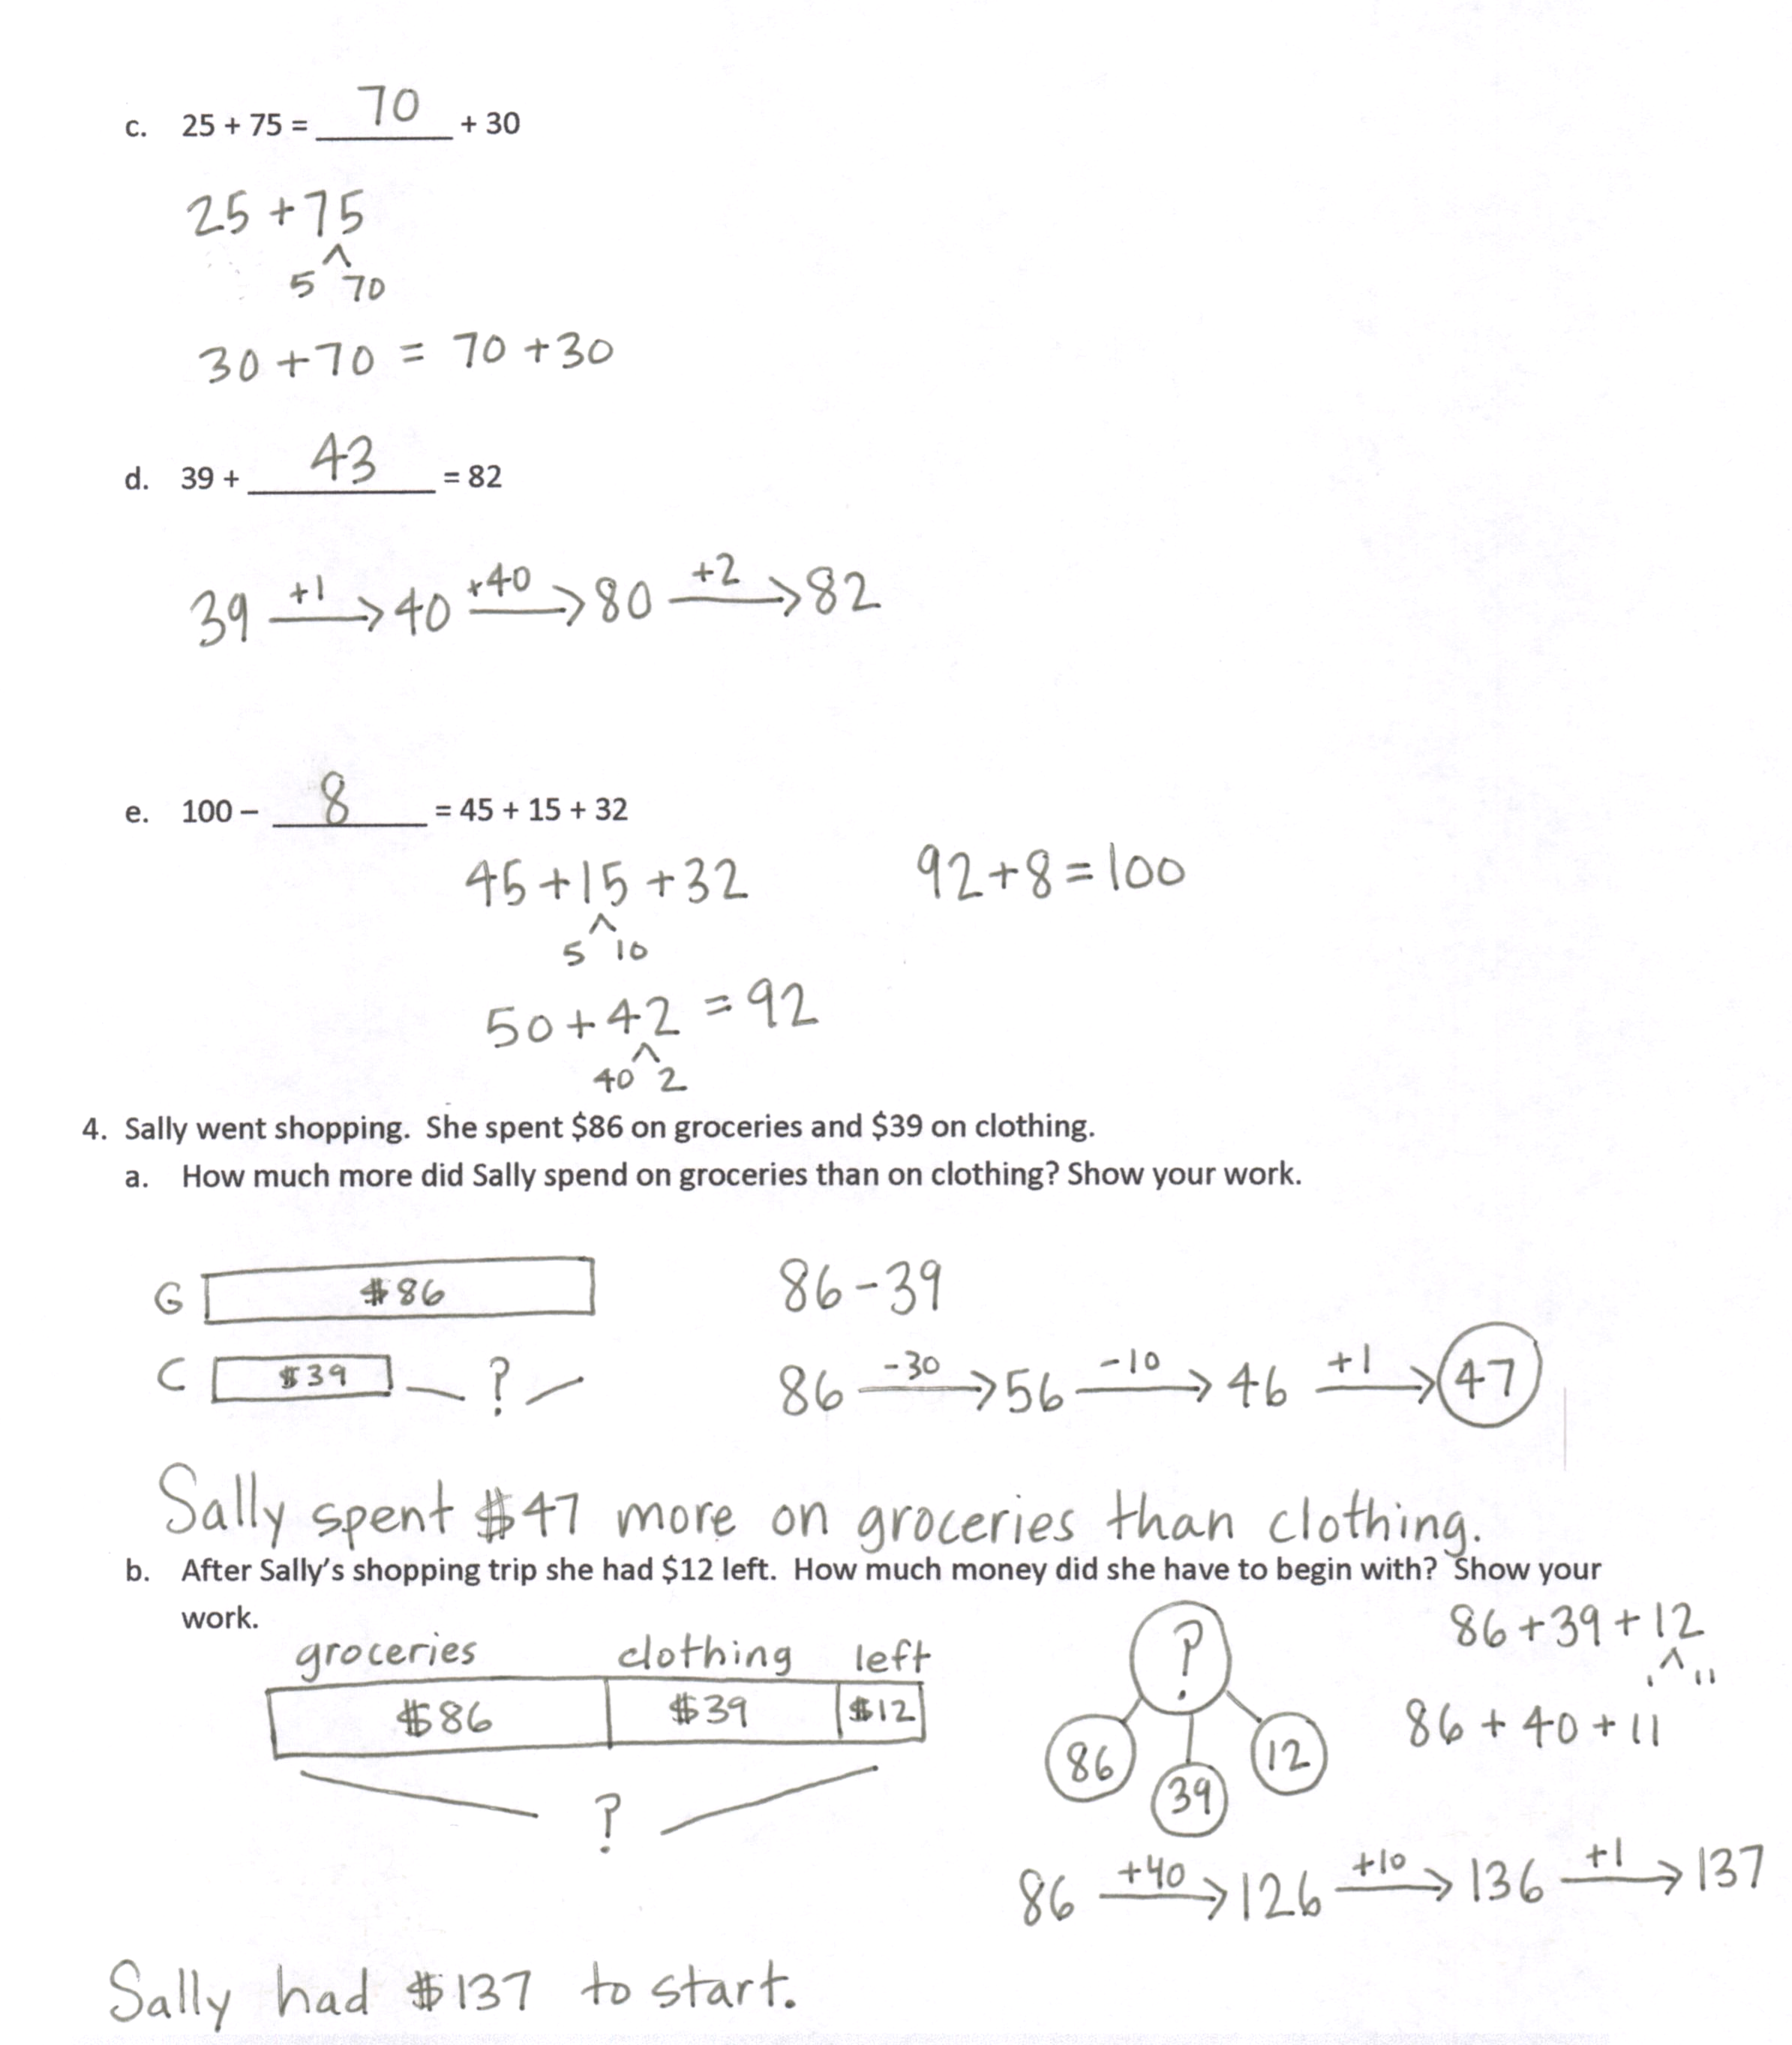 c. 25 + 75 = 70 + 30
25 + 75
5 70
30 + 70 = 70 + 30
d. 39 + 43 = 82
+1 +40 +2
39 → 40 → 80 → 82
e. 100 – 8 = 45 + 15 + 32
45 + 15 + 32 92 + 8 = 100
5 10
50 + 42 = 92
40 2
4. Sally went shopping. She spent $86 on groceries and $39 on clothing.
a. How much more did Sally spend on groceries than on clothing? Show your work.
G $86 86 - 39
-30 -10 +1
C $39 ? 86 → 56 → 46 → 47
Sally spent $47 more on groceries than clothing.
b. After Sally's shopping trip she had $12 left. How much money did she have to begin with? Show your
work.
groceries clothing left
$86 $39 $12
?
?
86 39 12
86 + 39 + 12
1 11
86 + 40 + 11
+40 +10 +1
86 → 126 → 136 → 137
Sally had $137 to start.